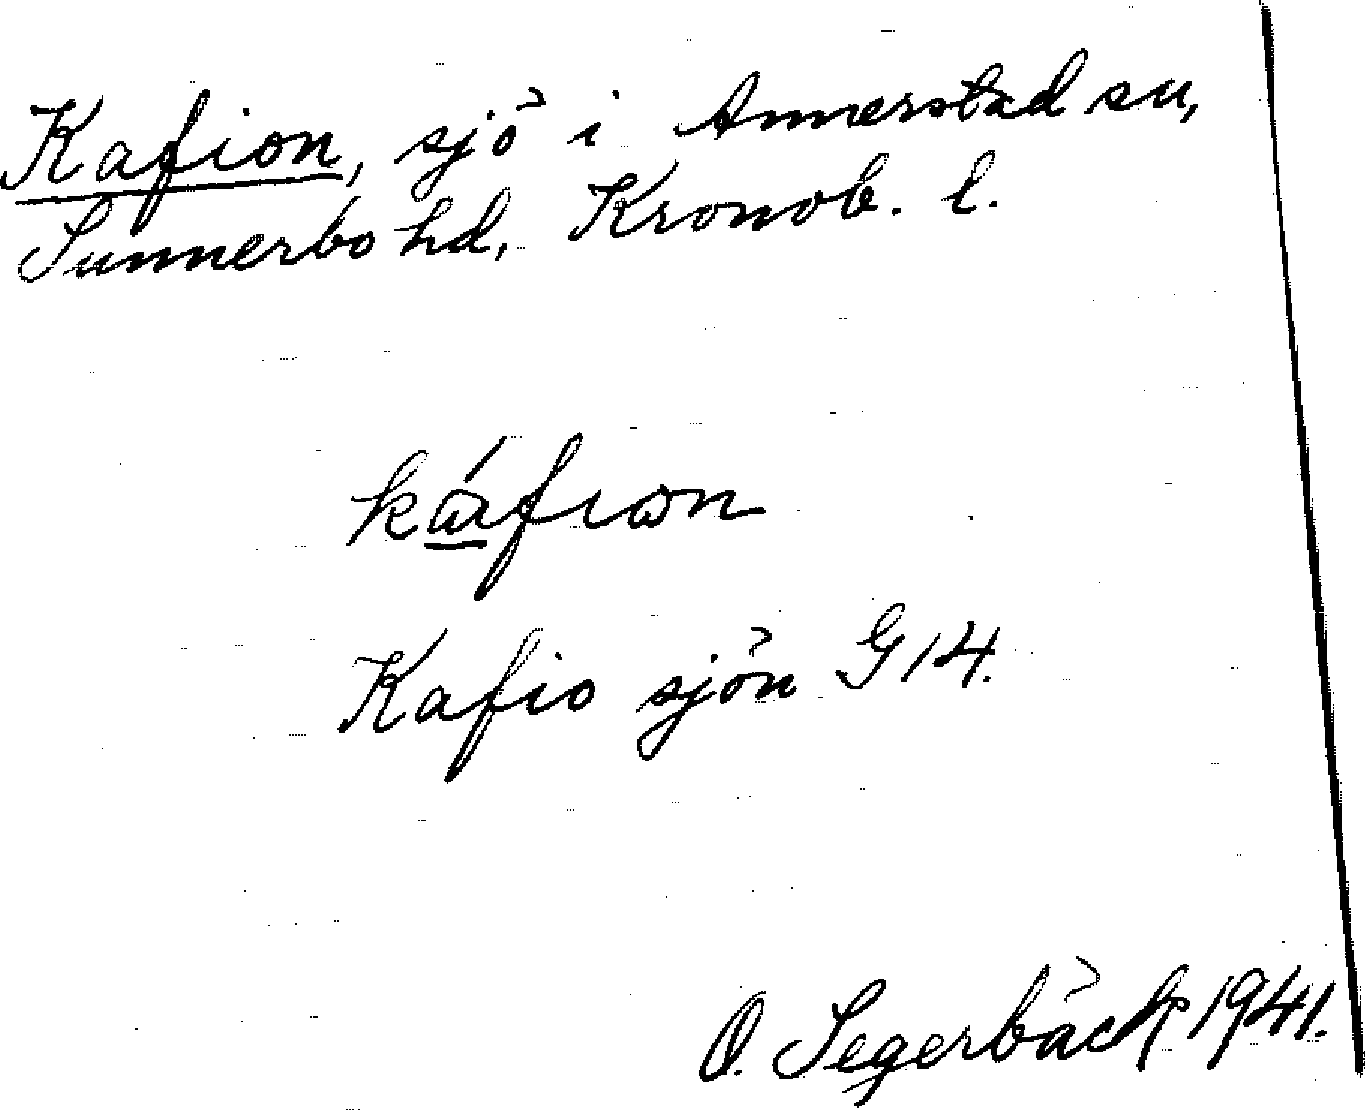 Kafion, sjö i Annerstad sn,
Sunnerbo hd, Kronob. l.
káfiωn
Kafio sjön G14.
O. Segerbäck 1941.